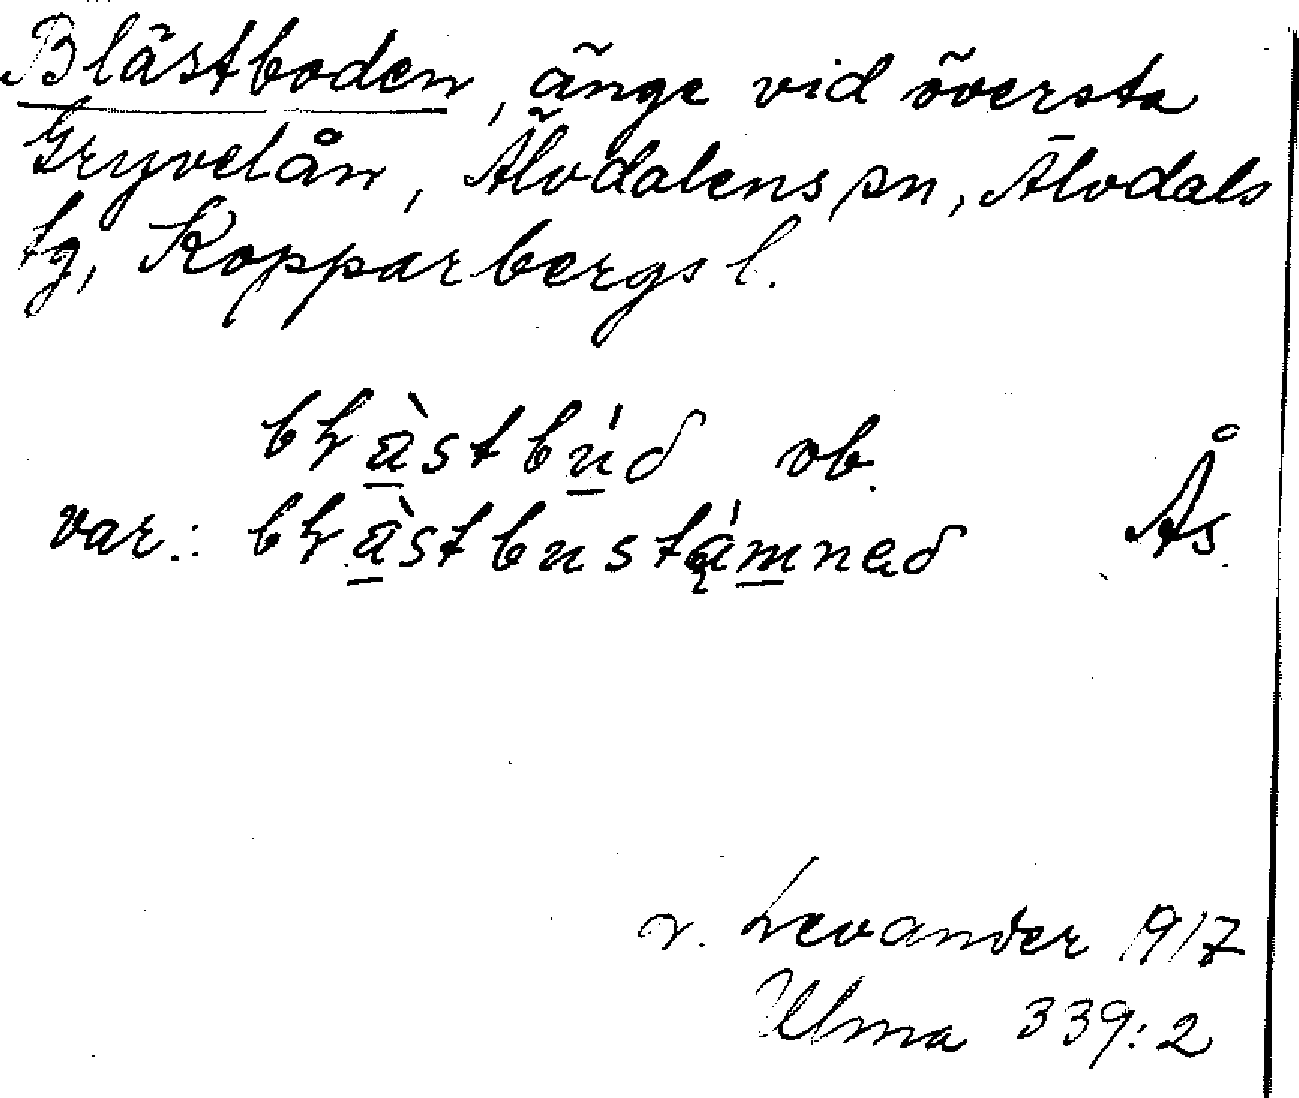 Blästboden, änge vid översta
Gryvelån, Älvdalens sn, Älvdals
tg, Kopparbergs l.
bɫä̀stbúð ob.
var.: bɫä̀stbustą́mneð Ås.
v. Levander 1917
Ulma 339:2